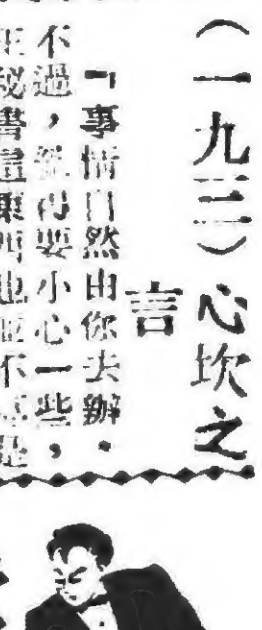 （一九三）心坎之
言
「事情自然由你去辦。
不過，總得要小心一些，
王秘書這東西也並不是